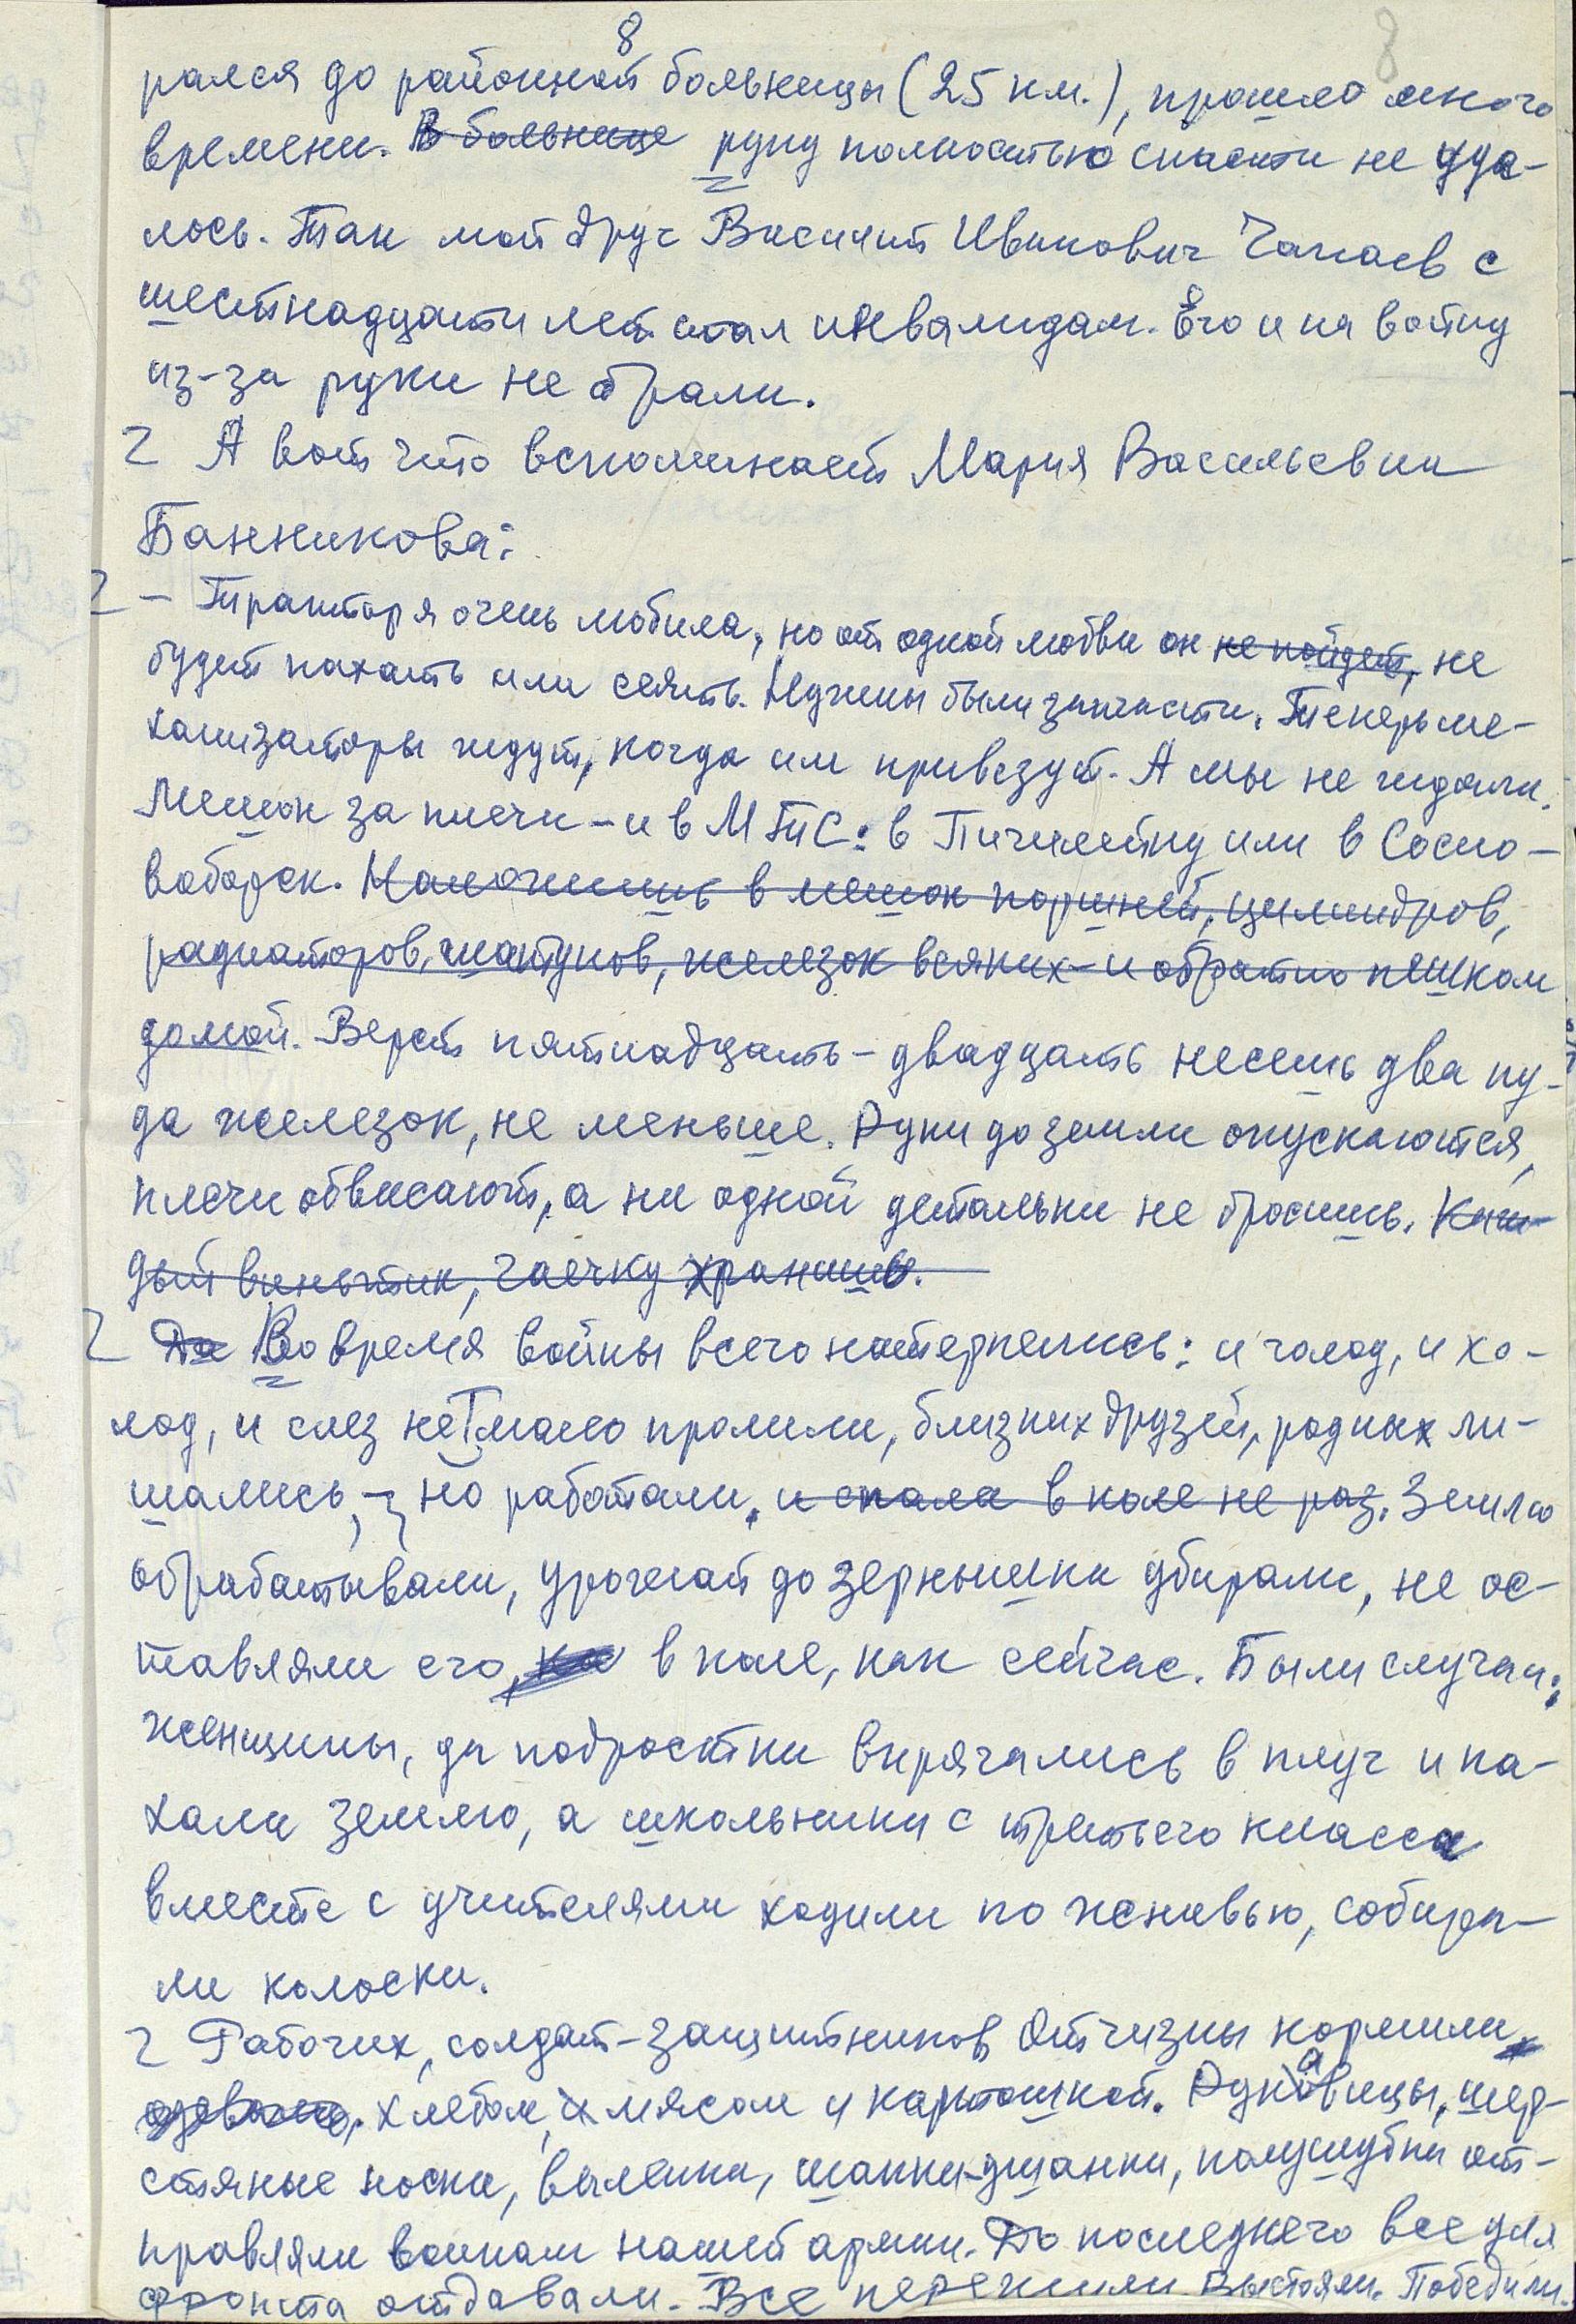 8
8
рался до районной больницы (25 км.), прошло много
времени. В больнице руку полностью спасти не уда-
лось. Так мой друг Василий Иванович Чапаев с
шестнадцати лет стал инвалидом. Его и на войну
из-за руки не брали.
А вот что вспоминает Мария Васильевна
Банникова:
– Трактор я очень любила, но от одной любви он не пойдет, не
будет пахать или сеять. Нужны были запчасти. Теперь ме-
ханизаторы ждут, когда им привезут. А мы не ждали.
Мешок за плечи – и в МТС: в Пичилейку или в Сосно-
воборск. Наложишь в мешок поршней, цилиндров,
радиаторов, шатунов, железок всяких – и обратно пешком
домой. Верст пятнадцать – двадцать несешь два пу-
да железок, не меньше. Руки до земли опускаются,
плечи обвисают, а ни одной детальки не бросишь. Каж-
дый винтик, гаечку хранишь.
Да Во время войны всего натерпелись: и голод, и хо-
лод, и слез немало пролили, близких друзей, родных ли-
шались, но работали. и спала в поле не раз. Землю
обрабатывали, урожай до зернышка убирали, не ос-
тавляли его, в поле, как сейчас. Были случаи:
женщины, да подростки впрягались в плуг и па-
хали землю, а школьники с третьего класса
вместе с учителями ходили по жнивью, собира-
ли колоски.
Рабочих, солдат-защитников Отчизны кормили
одевали, хлебом, и мясом и картошкой. Рукавицы, шер-
стяные носки, валенки, шапки-ушанки, полушубки от-
правляли воинам нашей армии. До последнего все для
фронта отдавали. Все пережили Выстояли. Победили.